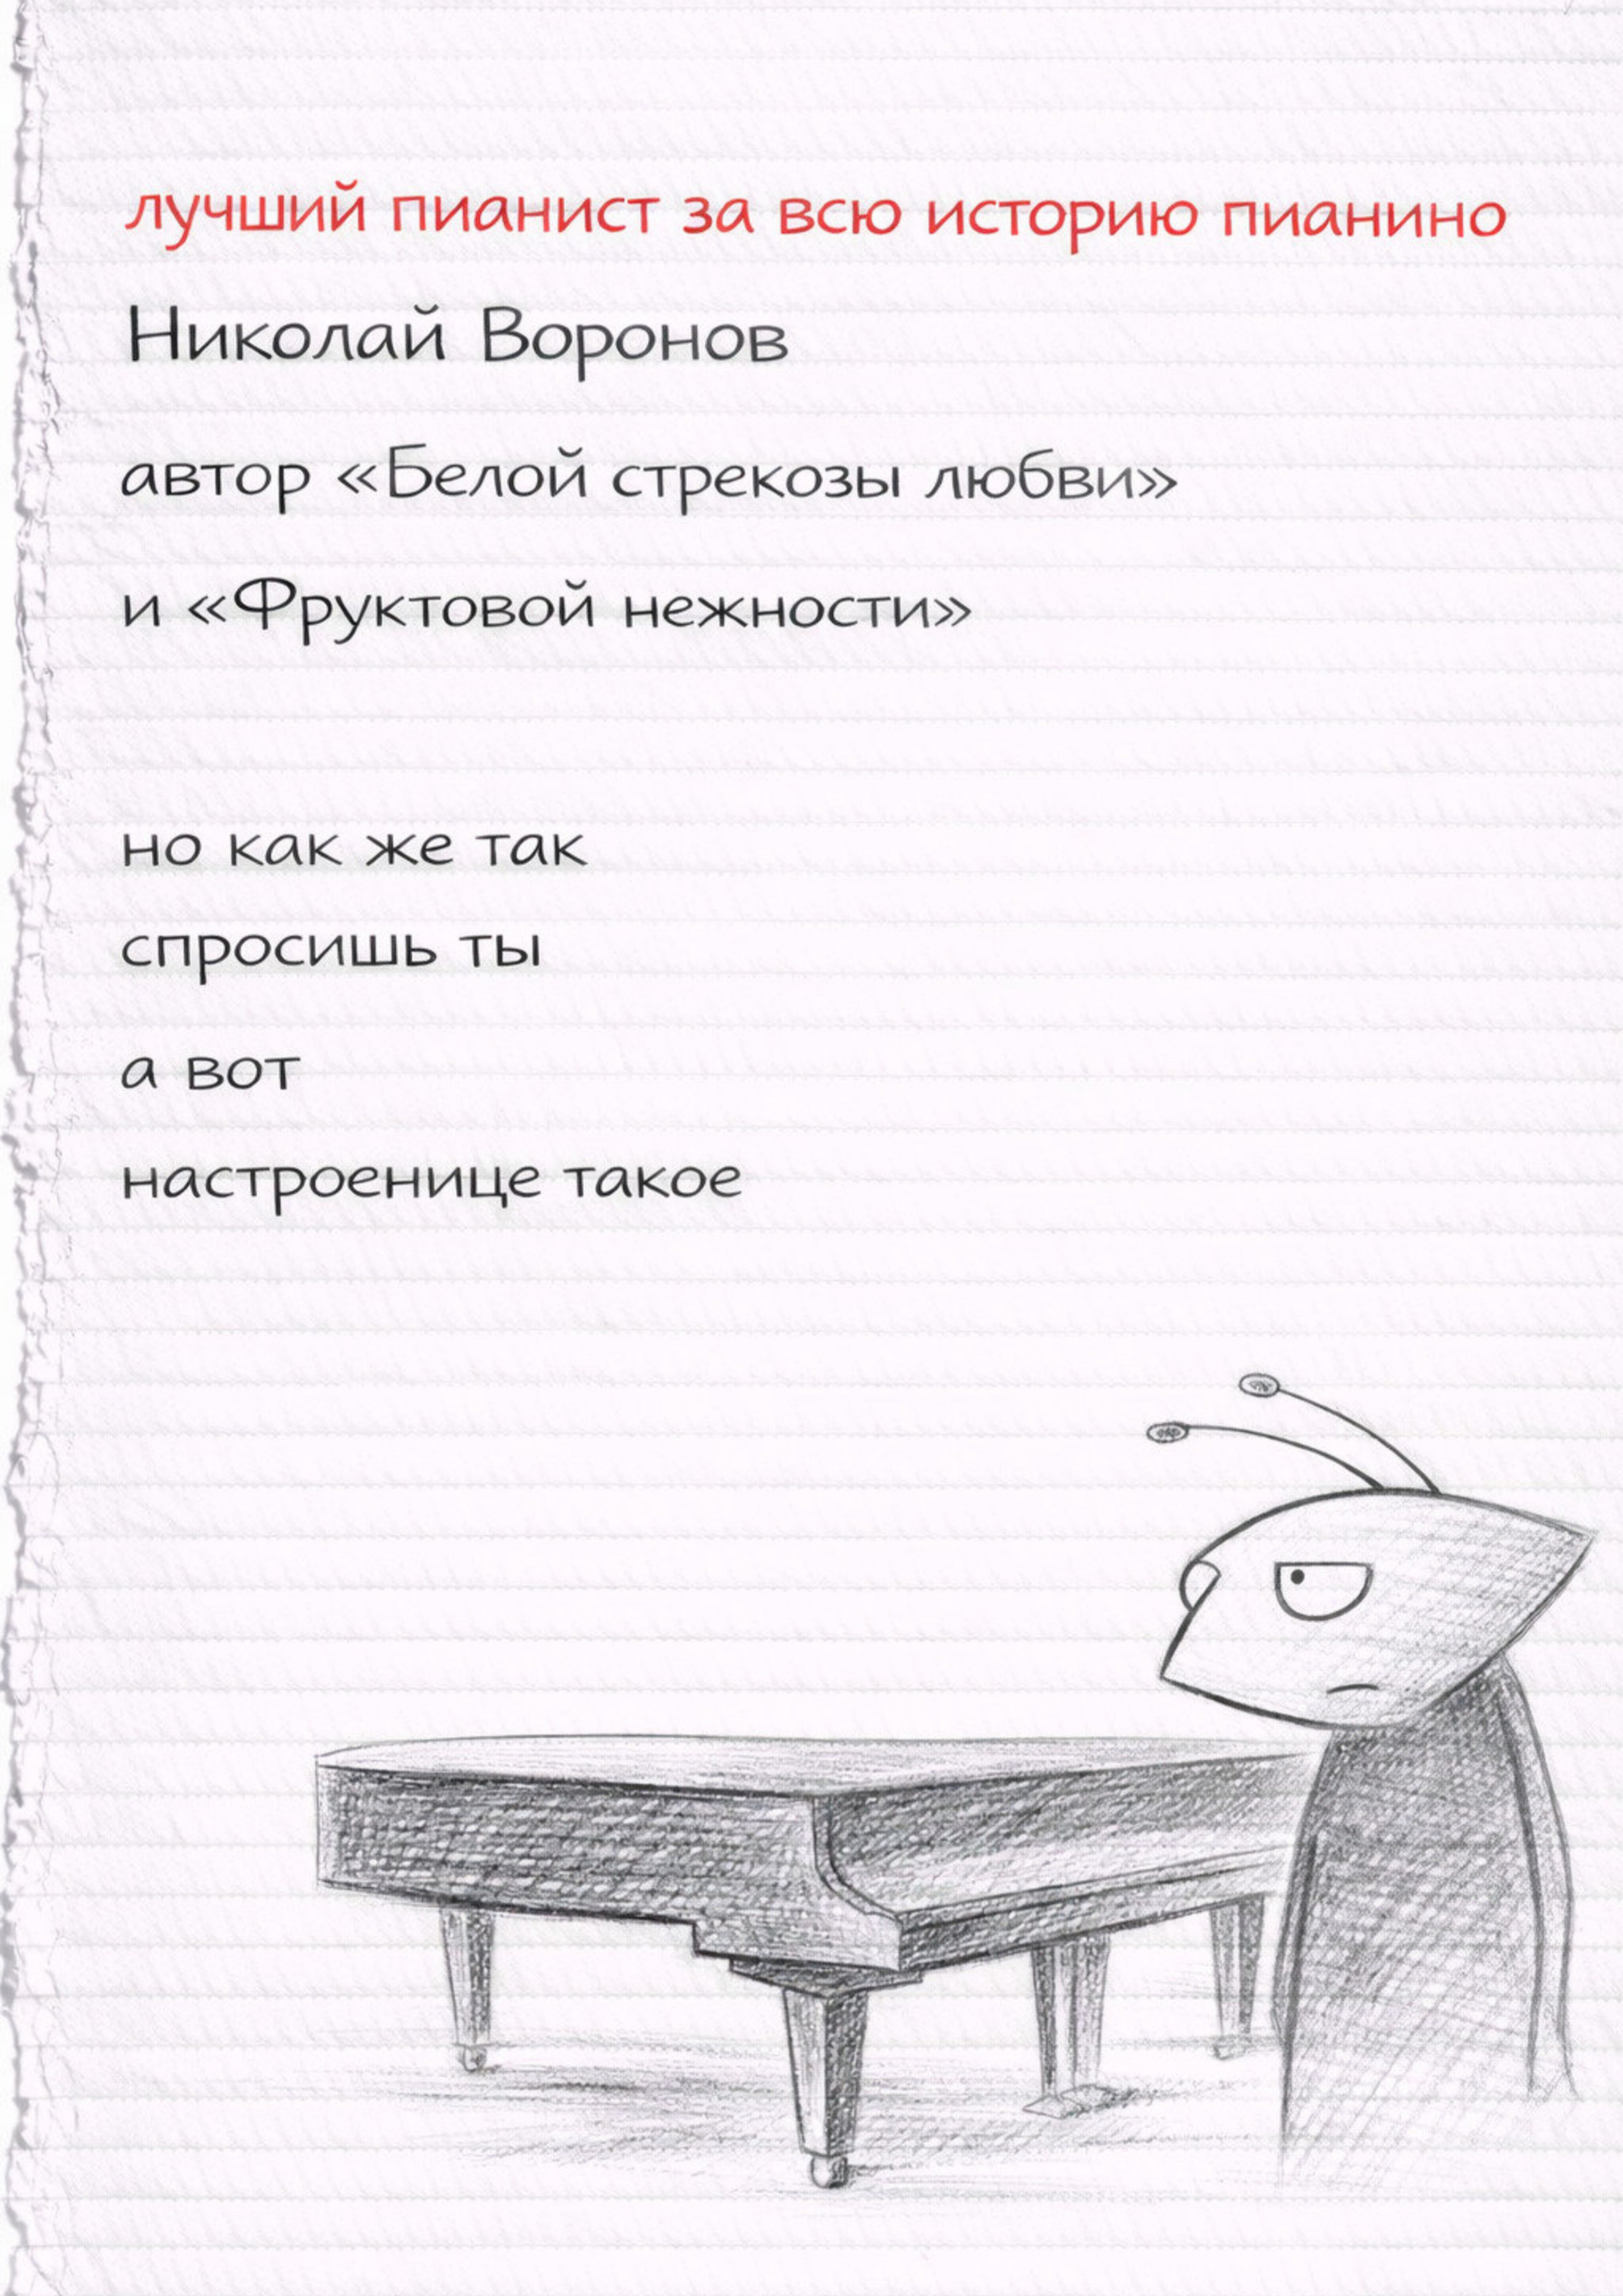 лучший пианист за всю историю пианино
Николай Воронов
автор «Белой стрекозы любви»
и «Фруктовой нежности»
но как же так
спросишь ты
а вот
настроенице такое